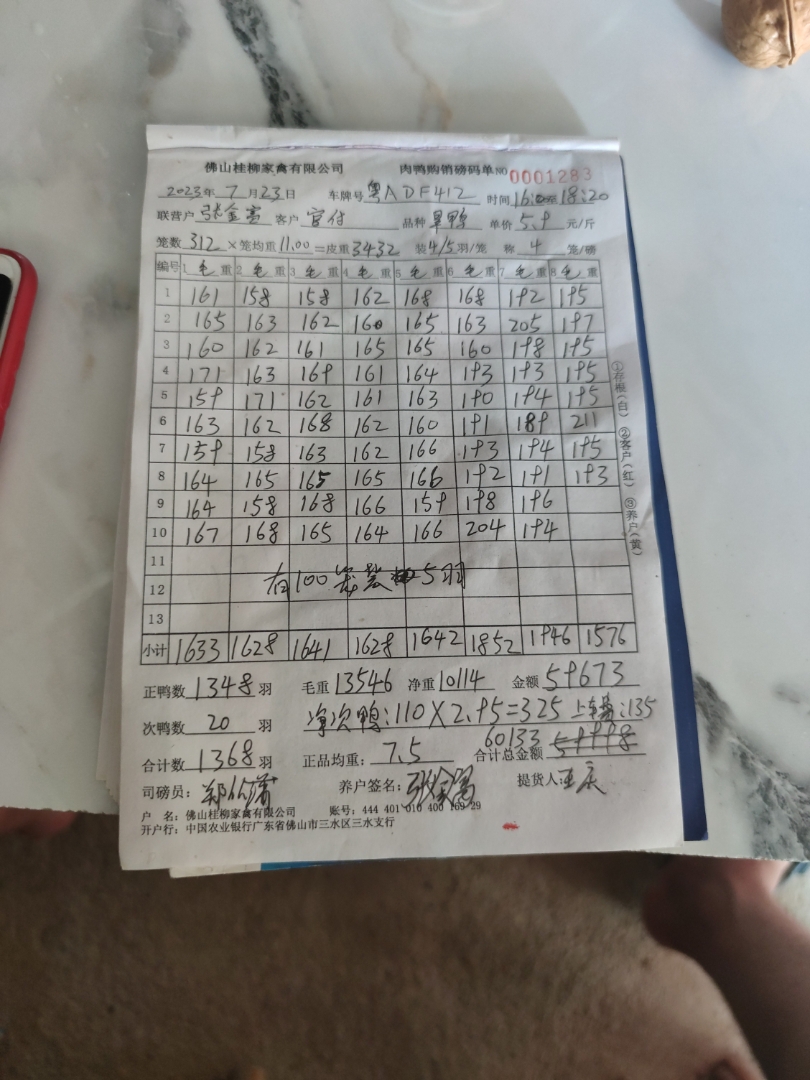 佛山桂柳家禽有限公司 肉鸭购销磅码单 NO 0001283
2023年 7月23日 车牌号 粤ADF412 时间 16:0 至 18:20
联营户 客户 官付 品种 旱鸭 单价 5.9 元/斤
笼数 312 ×笼均重 11.00 =皮重 3432 装 4/5 羽/笼 称 4 笼/磅
编号 1 毛重 2 毛重 3 毛重 4 毛重 5 毛重 6 毛重 7 毛重 8 毛重
1 161 158 158 162 168 168 192 195
2 165 163 162 160 165 163 205 197
3 160 162 161 165 165 160 198 195
4 171 163 169 161 164 193 193 195
5 159 171 162 161 163 190 194 195
6 163 162 168 162 160 191 189 211
7 159 158 163 162 166 193 194 195
8 164 165 165 165 166 192 191 193
9 164 158 168 166 159 198 196
10 167 168 165 164 166 204 194
11
12 有100笼装 5羽
13
小计 1633 1628 1641 1628 1642 1852 1946 1576
正鸭数 1348 羽 毛重 13546 净重 10114 金额 59673
次鸭数 20 羽 净次鸭:110×2.95=325 上车费:135
合计数 1368 羽 正品均重: 7.5 合计总金额 60133 59998
司磅员: 养户签名: 提货人:
户 名: 佛山桂柳家禽有限公司 账号: 444 401 010 400 169 29
开户行: 中国农业银行广东省佛山市三水区三水支行
①存根(白) ②客户(红) ③养户(黄)